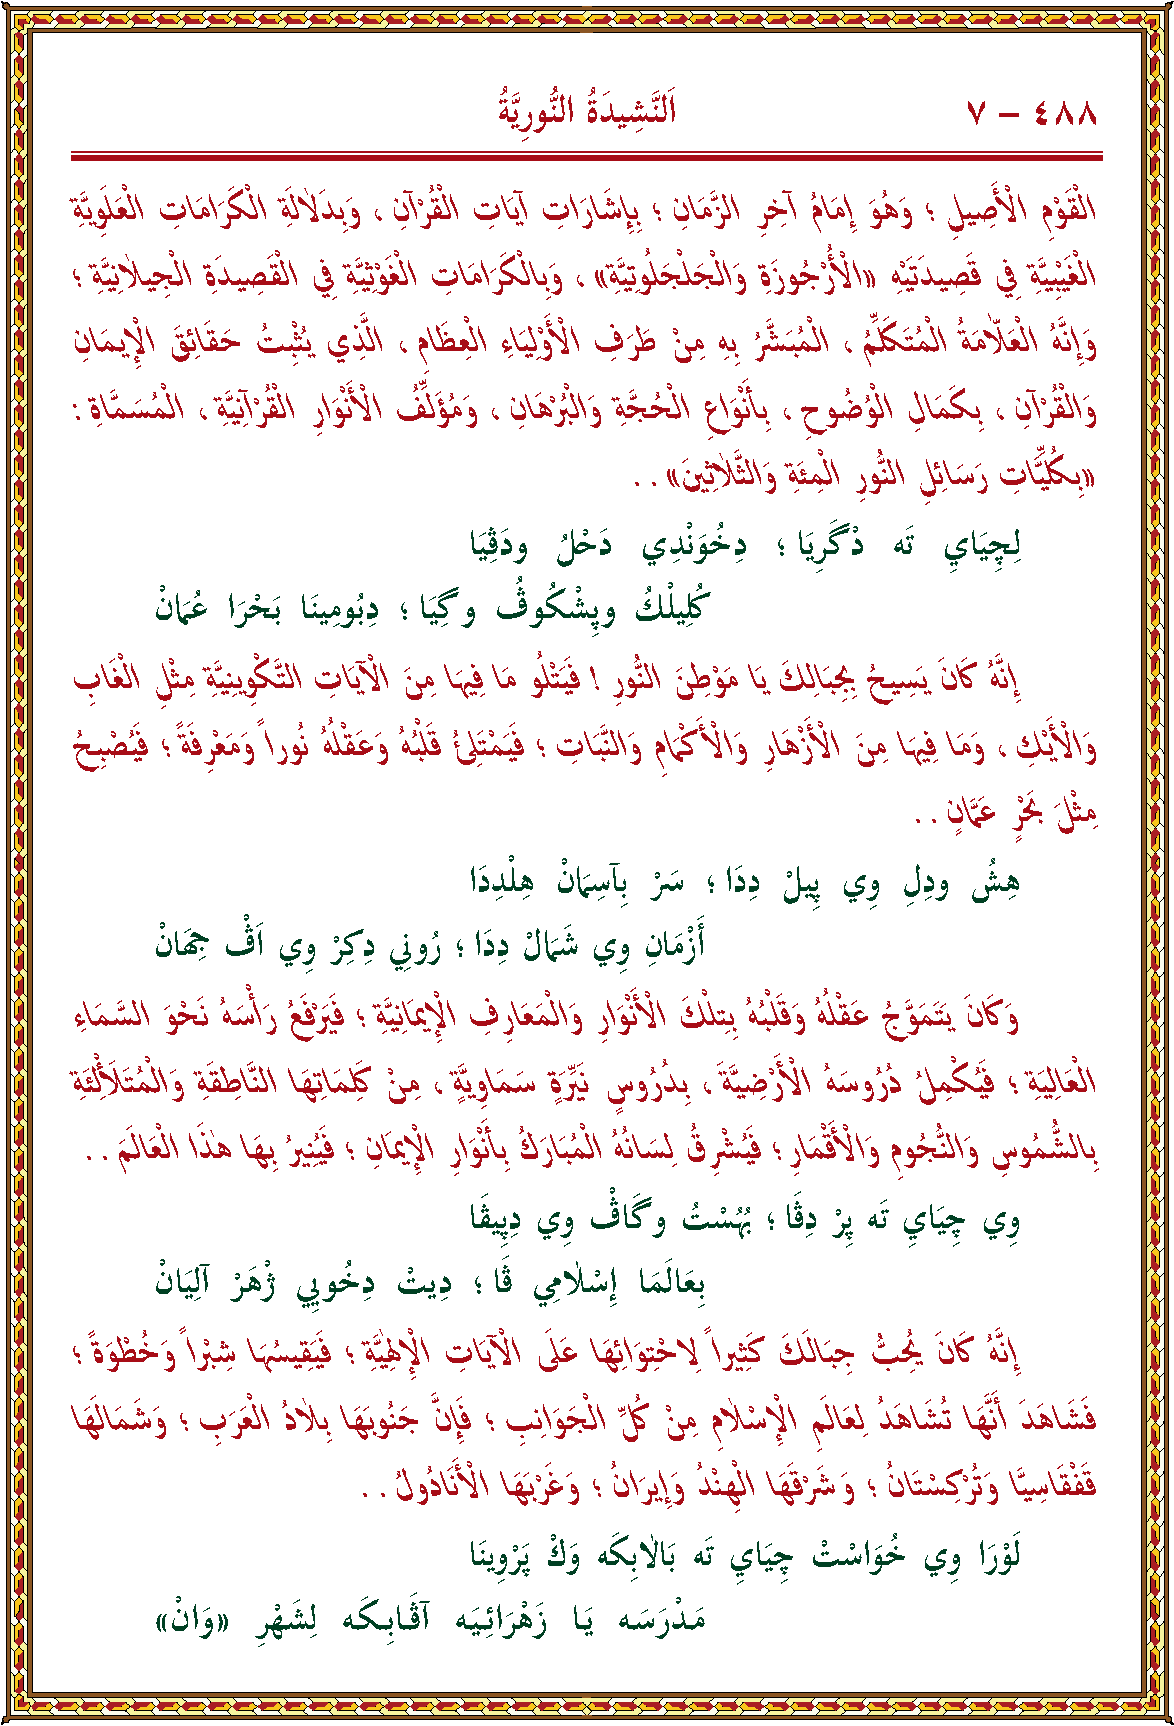 ٤٨٨ – ٧ اَلنَّشِيدَةُ النُّورِيَّةُ
الْقَوْمِ الْأَصِيلِ ؛ وَهُوَ إِمَامُ آخِرِ الزَّمَانِ ؛ بِإِشَارَاتِ آيَاتِ الْقُرْآنِ ، وَبِدَلَالَةِ الْكَرَامَاتِ الْعَلَوِيَّةِ
الْغَيْبِيَّةِ فِي قَصِيدَتَيْهِ «الْأُرْجُوزَةِ وَالْجَلْجَلُوتِيَّةِ» ، وَبِالْكَرَامَاتِ الْغَوْثِيَّةِ فِي الْقَصِيدَةِ الْجِيلَانِيَّةِ ؛
وَإِنَّهُ الْعَلَّامَةُ الْمُتَكَلِّمُ ، الْمُبَشَّرُ بِهِ مِنْ طَرَفِ الْأَوْلِيَاءِ الْعِظَامِ ، الَّذِي يُثْبِتُ حَقَائِقَ الْإِيمَانِ
وَالْقُرْآنِ ، بِكَمَالِ الْوُضُوحِ ، بِأَنْوَاعِ الْحُجَّةِ وَالْبُرْهَانِ ، وَمُؤَلِّفُ الْأَنْوَارِ الْقُرْآنِيَّةِ ، الْمُسَمَّاةِ :
«بِكُلِّيَّاتِ رَسَائِلِ النُّورِ الْمِئَةِ وَالثَّلَاثِينَ» . .
لِچِيَايِ تَه دْگَرِيَا ؛ دِخُوَنْدِي دَحْلُ ودَڤِيَا
كُلِيلْكُ وپِشْكُوڤُ وگِيَا ؛ دِبُومِينَا بَحْرَا عُمَانْ
إِنَّهُ كَانَ يَسِيحُ بِجِبَالِكَ يَا مَوْطِنَ النُّورِ ! فَيَتْلُو مَا فِيهَا مِنَ الْآيَاتِ التَّكْوِينِيَّةِ مِثْلِ الْغَابِ
وَالْأَيْكِ ، وَمَا فِيهَا مِنَ الْأَزْهَارِ وَالْأَكْمَامِ وَالنَّبَاتِ ؛ فَيَمْتَلِئُ قَلْبُهُ وَعَقْلُهُ نُوراً وَمَعْرِفَةً ؛ فَيُصْبِحُ
مِثْلَ بَحْرِ عَمَّانٍ . .
هِشُ ودِلِ وِي پِيلْ دِدَا ؛ سَرْ بِآسِمَانْ هِلْدِدَا
أَزْمَانِ وِي شَمَالْ دِدَا ؛ رُونِي دِكِرْ وِي اَڤْ جِهَانْ
وَكَانَ يَتَمَوَّجُ عَقْلُهُ وَقَلْبُهُ بِتلْكَ الْأَنْوَارِ وَالْمَعَارِفِ الْإِيمَانِيَّةِ ؛ فَيَرْفَعُ رَأْسَهُ نَحْوَ السَّمَاءِ
الْعَالِيَةِ ؛ فَيُكْمِلُ دُرُوسَهُ الْأَرْضِيَّةَ ، بِدُرُوسٍ نَيِّرَةٍ سَمَاوِيَّةٍ ، مِنْ كَلِمَاتِهَا النَّاطِقَةِ وَالْمُتَلَأْلِئَةِ
بِالشُّمُوسِ وَالنُّجُومِ وَالْأَقْمَارِ ؛ فَيُشْرِقُ لِسَانُهُ الْمُبَارَكُ بِأَنْوَارِ الْإِيمَانِ ؛ فَيُنِيرُ بِهَا هٰذَا الْعَالَمَ . .
وِي چِيَايِ تَه پِرْ دِڤَا ؛ بُهُسْتُ وگَاڤْ وِي دِپِيڤَا
بِعَالَمَا إِسْلَامِي ڤَا ؛ دِيتْ دِخُويِي ژْهَرْ آلِيَانْ
إِنَّهُ كَانَ يُحِبُّ جِبَالَكَ كَثِيراً لِاحْتِوَائِهَا عَلَى الْآيَاتِ الْإِلٰهِيَّةِ ؛ فَيَقِيسُهَا شِبْراً وَخُطْوَةً ؛
فَشَاهَدَ أَنَّهَا تُشَاهَدُ لِعَالَمِ الْإِسْلَامِ مِنْ كُلِّ الْجَوَانِبِ ؛ فَإِنَّ جَنُوبَهَا بِلَادُ الْعَرَبِ ؛ وَشَمَالَهَا
قَفْقَاسِيَّا وَتُرْكِسْتَانُ ؛ وَشَرْقَهَا الْهِنْدُ وَإِيرَانُ ؛ وَغَرْبَهَا الْأَنَادُولُ . .
لَوْرَا وِي خُوَاسْتْ چِيَايِ تَه بَالَابِكَه وَكْ پَرْوِينَا
مَدْرَسَه يَا زَهْرَائِيَه آڤَابِكَه لِشَهْرِ «وَانْ»